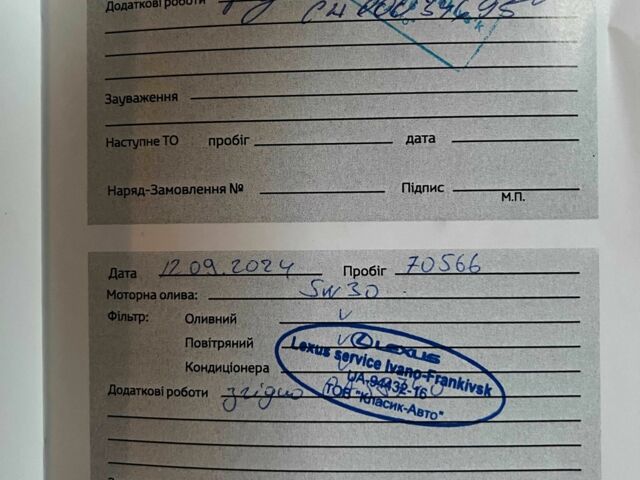 Додаткові роботи
Зауваження
Наступне ТО пробіг дата
Наряд-Замовлення № Підпис
М.П.
Дата 12.09.2024 Пробіг 70566
Моторна олива: 5W30
Фільтр: Оливний v
Повітряний v
Кондиціонера v
LEXUS
Lexus service Ivano-Frankivsk
UA-94432-16
ТОВ "Класик-Авто"
Додаткові роботи згідно